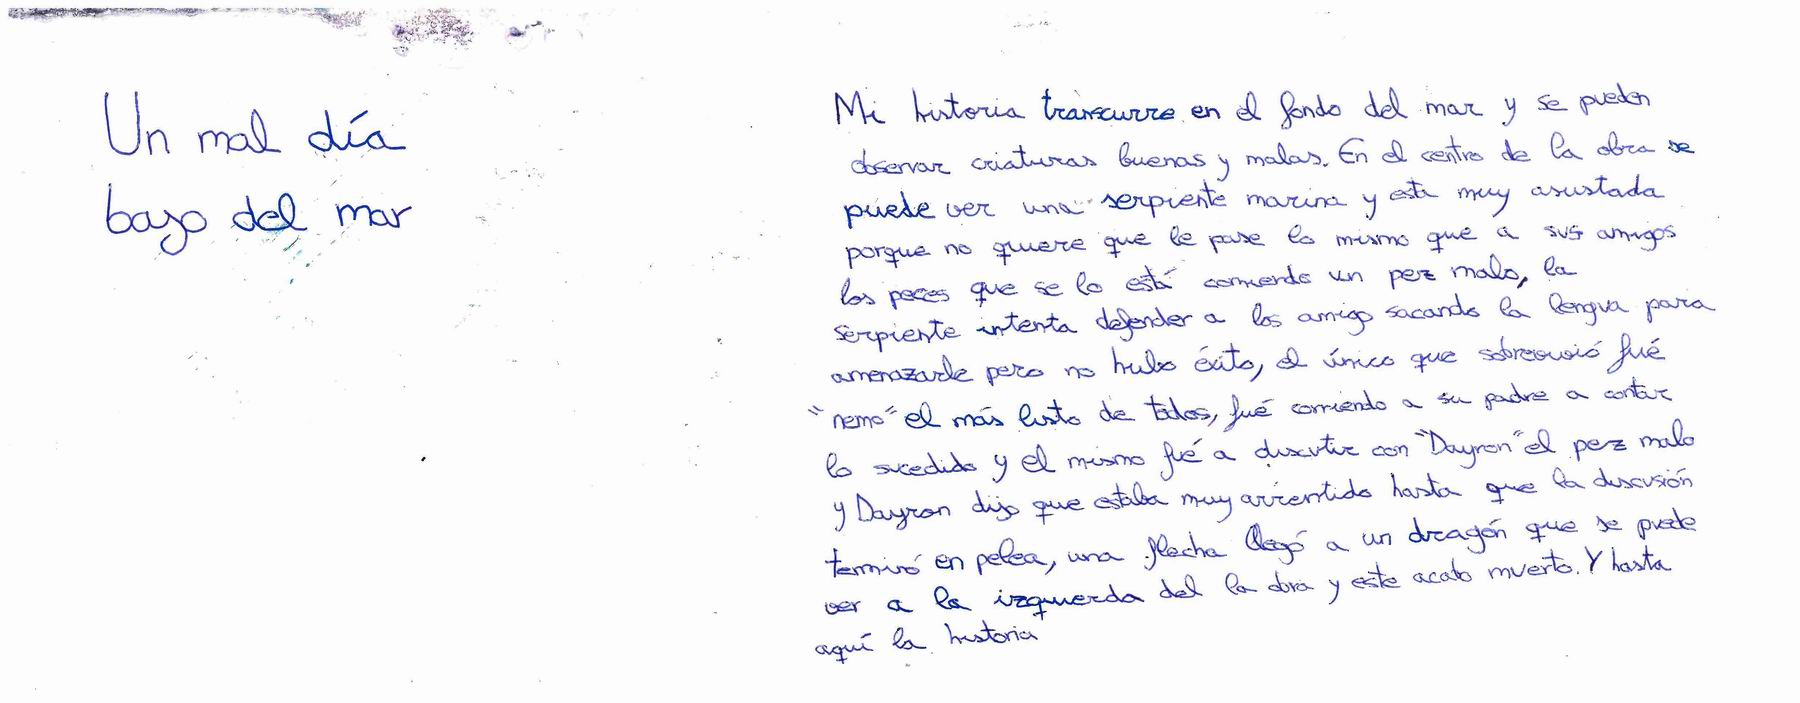 Un mal día
bajo del mar
Mi historia transcurre en el fondo del mar y se pueden
observar criaturas buenas y malas. En el centro de la obra se
puede ver una serpiente marina y esta muy asustada
porque no quiere que le pase lo mismo que a sus amigos
los peces que se lo está comiendo un pez malo, la
serpiente intenta defender a los amigo sacando la lengua para
amenazarle pero no hubo éxito, el único que sobrevivió fué
"nemo" el más listo de todos, fué corriendo a su padre a contar
lo sucedido y el mismo fué a discutir con "Dayron" el pez malo
y Dayron dijo que estaba muy arrentido hasta que la discusión
terminó en pelea, una flecha llegó a un dragón que se puede
ver a la izquierda del la obra y este acabo muerto. Y hasta
aquí la historia